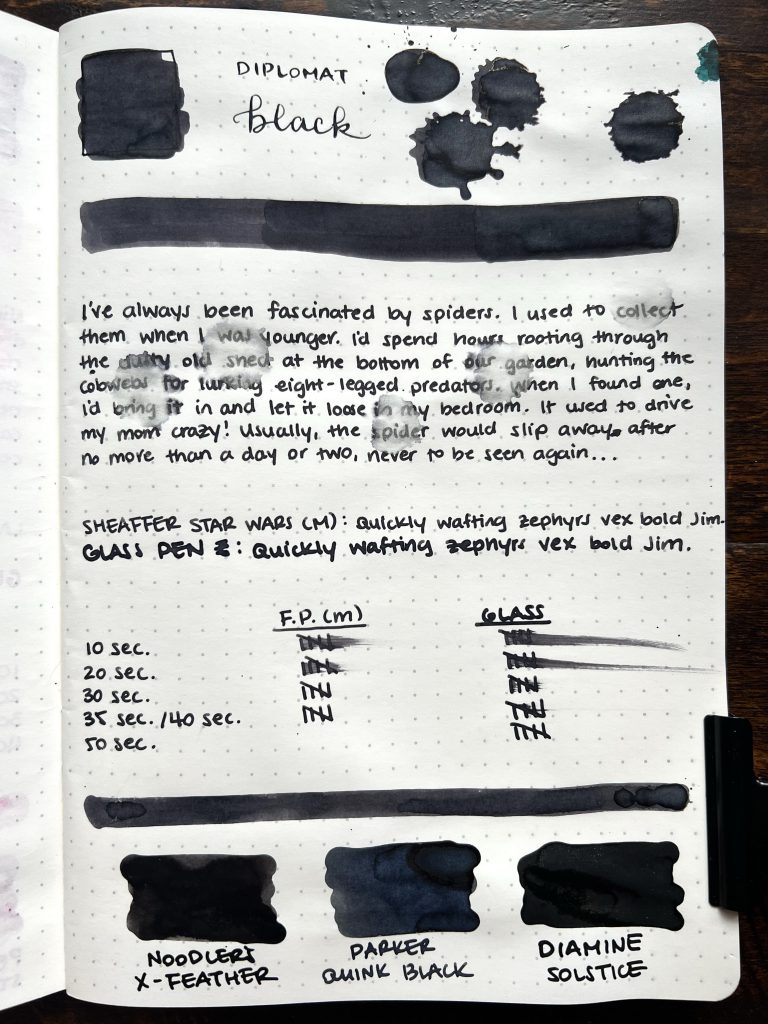 DIPLOMAT
black
I've always been fascinated by spiders. I used to collect
them when I was younger. I'd spend hours rooting through
the dusty old shed at the bottom of our garden, hunting the
cobwebs for lurking eight-legged predators. When I found one,
I'd bring it in and let it loose in my bedroom. It used to drive
my mom crazy! Usually, the spider would slip away, after
no more than a day or two, never to be seen again...
SHEAFFER STAR WARS (M): Quickly wafting zephyrs vex bold Jim.
GLASS PEN : Quickly wafting zephyrs vex bold Jim.
F.P. (M) GLASS
10 sec.
20 sec.
30 sec.
35 sec. /40 sec.
50 sec.
NOODLER'S PARKER DIAMINE
X-FEATHER QUINK BLACK SOLSTICE